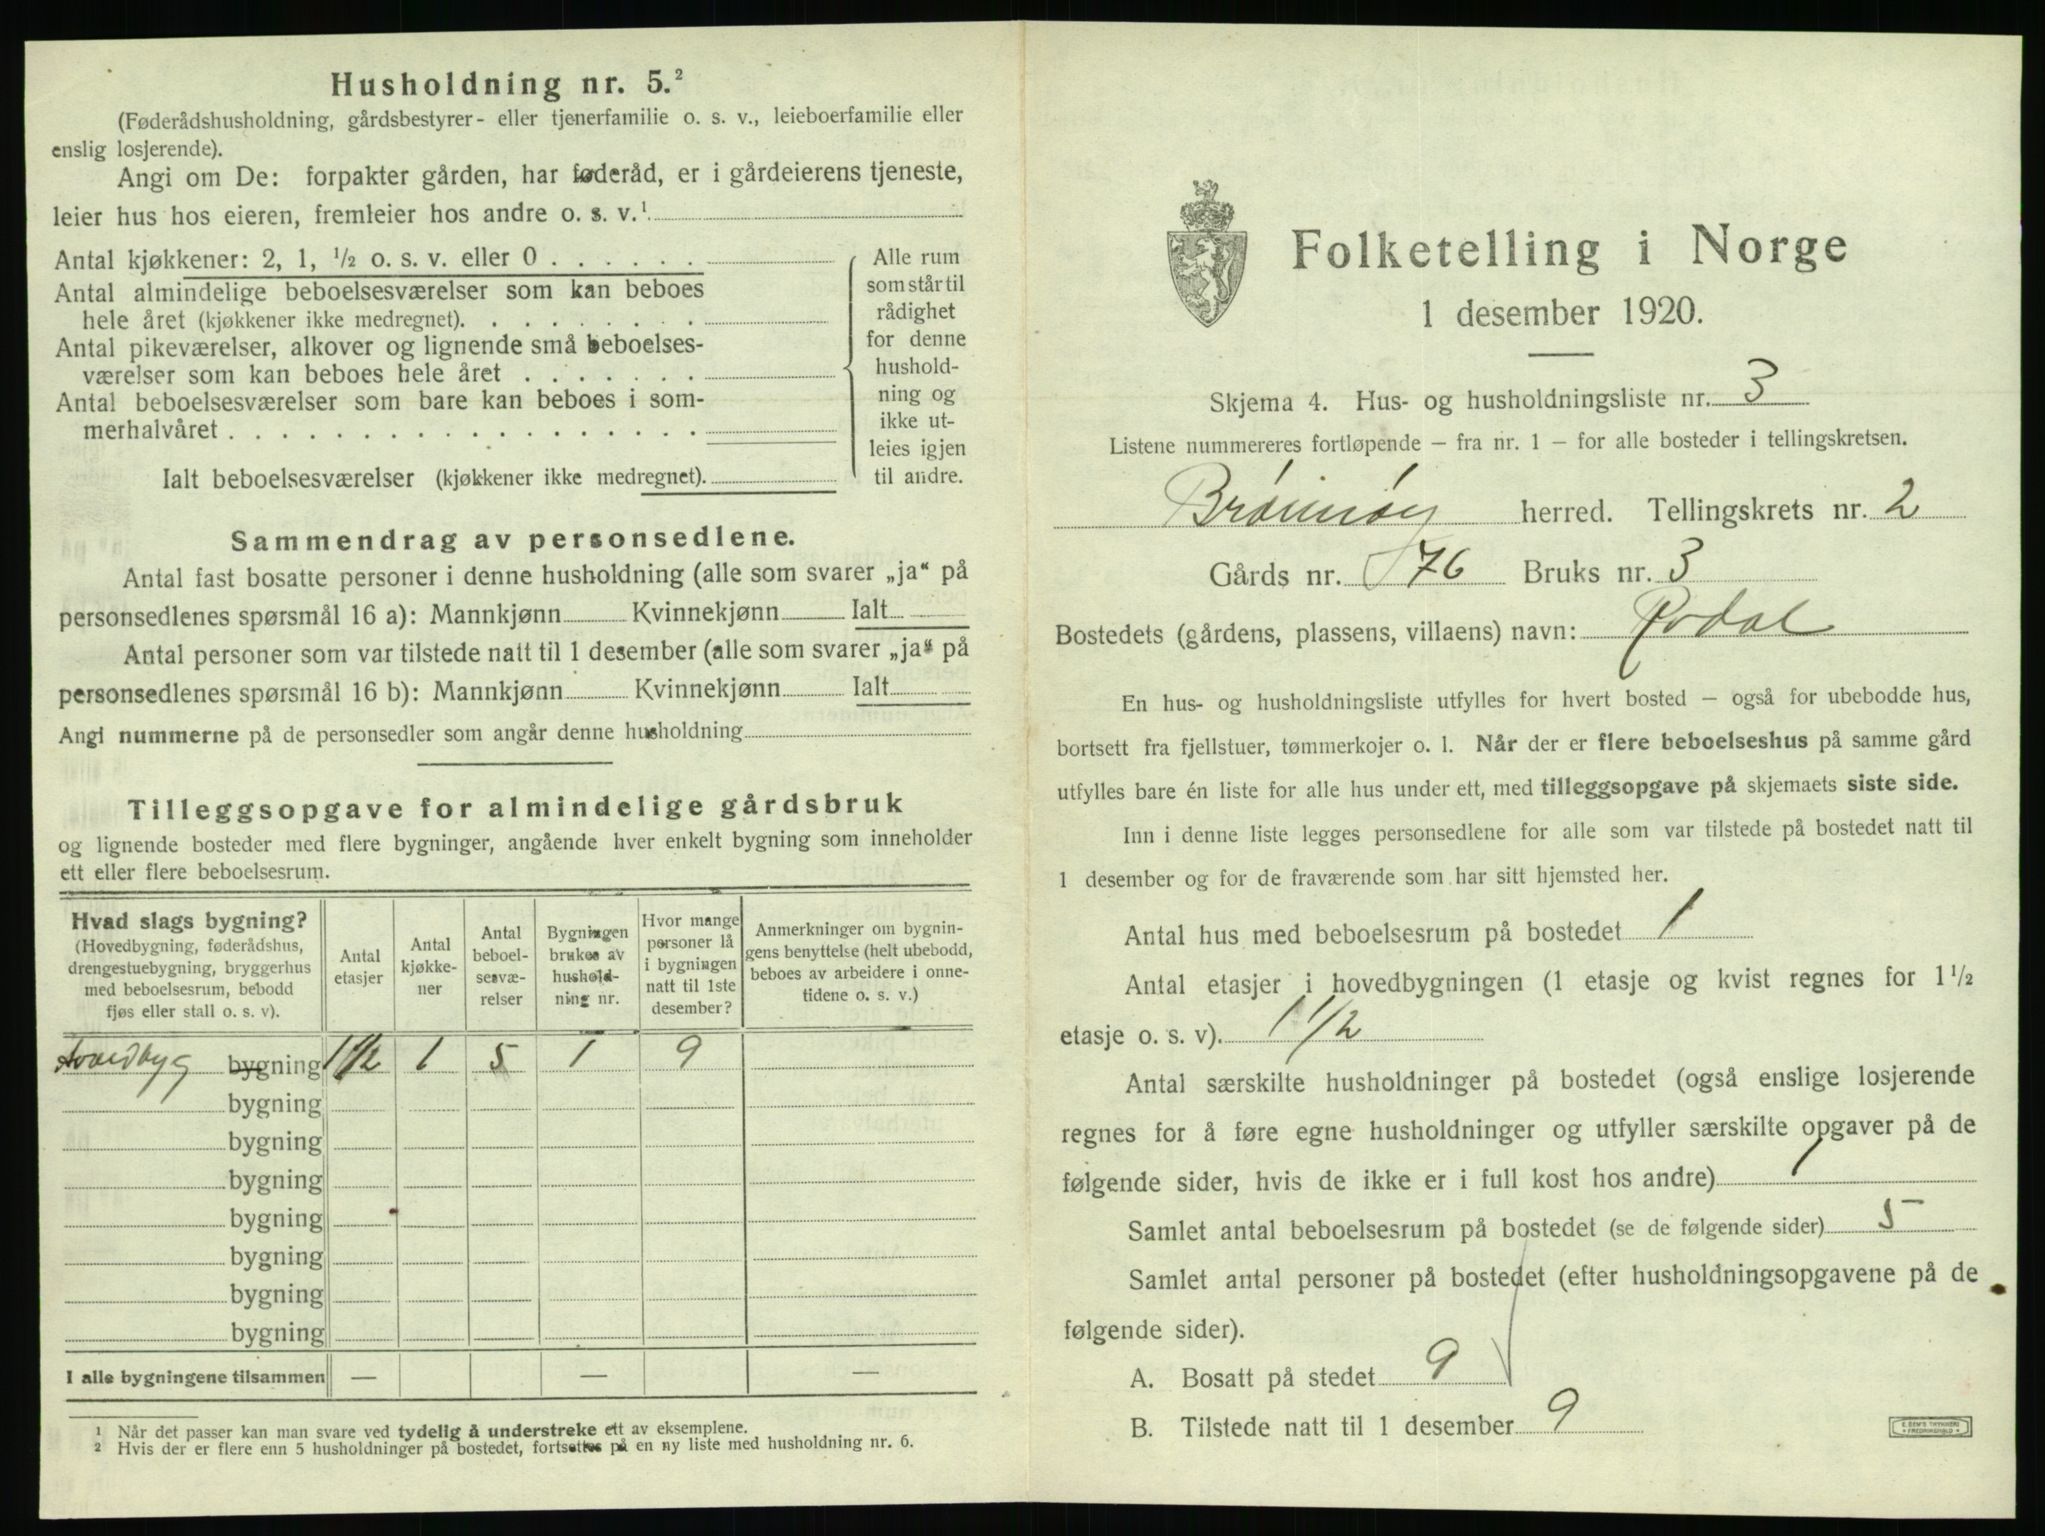 Husholdning nr. 5.²
(Føderådshusholdning, gårdsbestyrer- eller tjenerfamilie o. s. v., leieboerfamilie eller
enslig losjerende).
Angi om De: forpakter gården, har føderåd, er i gårdeierens tjeneste,
leier hus hos eieren, fremleier hos andre o. s. v.¹
Antal kjøkkener: 2, 1, ½ o. s. v. eller 0
Antal almindelige beboelsesværelser som kan beboes
hele året (kjøkkener ikke medregnet).
Antal pikeværelser, alkover og lignende små beboelses-
værelser som kan beboes hele året
Antal beboelsesværelser som bare kan beboes i som-
merhalvåret
Ialt beboelsesværelser (kjøkkener ikke medregnet).
Alle rum
som står til
rådighet
for denne
hushold-
ning og
ikke ut-
leies igjen
til andre.
Sammendrag av personsedlene.
Antal fast bosatte personer i denne husholdning (alle som svarer „ja“ på
personsedlenes spørsmål 16 a): Mannkjønn Kvinnekjønn Ialt
Antal personer som var tilstede natt til 1 desember (alle som svarer „ja“ på
personsedlenes spørsmål 16 b): Mannkjønn Kvinnekjønn Ialt
Angi nummerne på de personsedler som angår denne husholdning
Tilleggsopgave for almindelige gårdsbruk
og lignende bosteder med flere bygninger, angående hver enkelt bygning som inneholder
ett eller flere beboelsesrum.
Hvad slags bygning?
(Hovedbygning, føderådshus,
drengestuebygning, bryggerhus
med beboelsesrum, bebodd
fjøs eller stall o. s. v).
Antal
etasjer
Antal
kjøkke-
ner
Antal
beboel-
sesvæ-
relser
Bygningen
brukes av
hushold-
ning nr.
Hvor mange
personer lå
i bygningen
natt til 1ste
desember?
Anmerkninger om bygnin-
gens benyttelse (helt ubebodd,
beboes av arbeidere i onne-
tidene o. s. v.)
bygning 1 1/2 1 5 1 9
bygning
bygning
bygning
bygning
bygning
bygning
bygning
I alle bygningene tilsammen — — —
¹ Når det passer kan man svare ved tydelig å understreke ett av eksemplene.
² Hvis der er flere enn 5 husholdninger på bostedet, fortsettes på en ny liste med husholdning nr. 6.
Folketelling i Norge
1 desember 1920.
Skjema 4. Hus- og husholdningsliste nr. 3
Listene nummereres fortløpende – fra nr. 1 – for alle bosteder i tellingskretsen.
Brönnöy herred. Tellingskrets nr. 2
Gårds nr. 76 Bruks nr. 3
Bostedets (gårdens, plassens, villaens) navn: Rodal
En hus- og husholdningsliste utfylles for hvert bosted – også for ubebodde hus,
bortsett fra fjellstuer, tømmerkojer o. l. Når der er flere beboelseshus på samme gård
utfylles bare én liste for alle hus under ett, med tilleggsopgave på skjemaets siste side.
Inn i denne liste legges personsedlene for alle som var tilstede på bostedet natt til
1 desember og for de fraværende som har sitt hjemsted her.
Antal hus med beboelsesrum på bostedet 1
Antal etasjer i hovedbygningen (1 etasje og kvist regnes for 1½
etasje o. s. v). 1 1/2
Antal særskilte husholdninger på bostedet (også enslige losjerende
regnes for å føre egne husholdninger og utfyller særskilte opgaver på de
følgende sider, hvis de ikke er i full kost hos andre) 1
Samlet antal beboelsesrum på bostedet (se de følgende sider) 5
Samlet antal personer på bostedet (efter husholdningsopgavene på de
følgende sider).
A. Bosatt på stedet 9
B. Tilstede natt til 1 desember 9